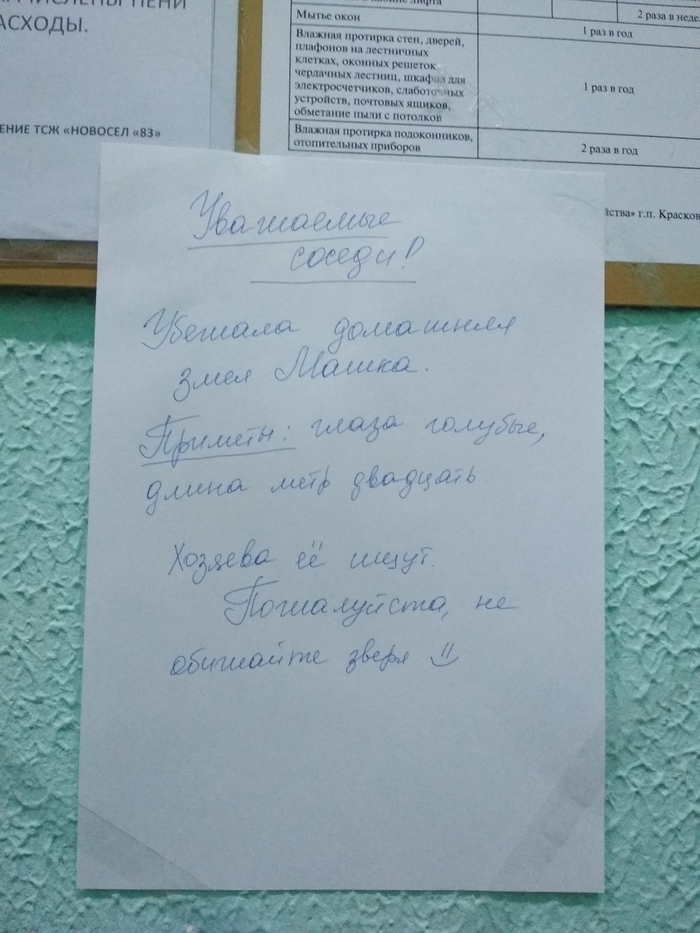 РАСХОДЫ.
ЕНИЕ ТСЖ «НОВОСЕЛ «83»
2 раза в неде
Мытье окон
1 раз в год
Влажная протирка стен, дверей,
плафонов на лестничных
клетках, оконных решеток
чердачных лестниц, шкафов для
электросчетчиков, слаботочных
устройств, почтовых ящиков,
обметание пыли с потолков
1 раз в год
Влажная протирка подоконников,
отопительных приборов
2 раза в год
йства» г.п. Красков
Уважаемые
соседи!
Убежала домашняя
змея Машка.
Приметы: глаза голубые,
длина метр двадцать
Хозяева её ищут.
Пожалуйста, не
обижайте зверя